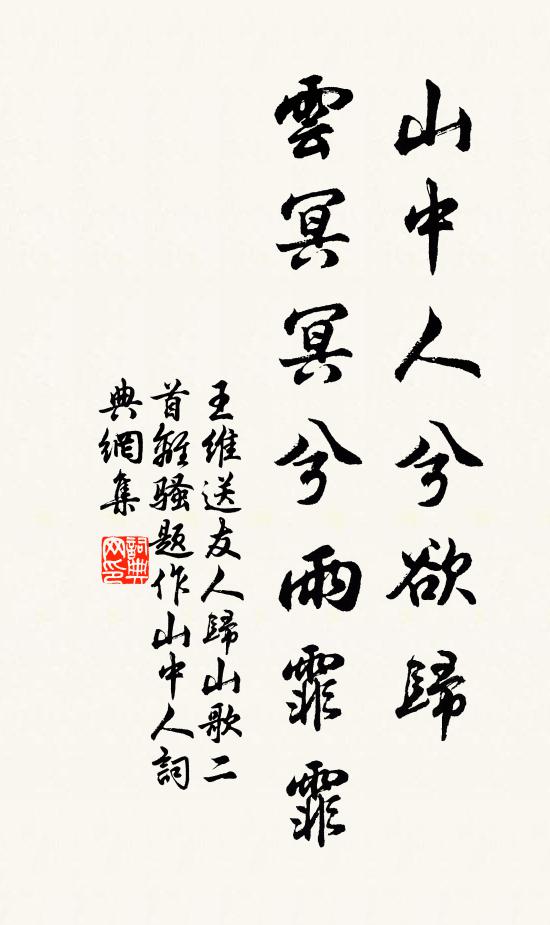 山中人兮欲歸
雲冥冥兮雨霏霏
王維送友人歸山歌二
首離騷題作山中人詞
典網集
詞典
网印